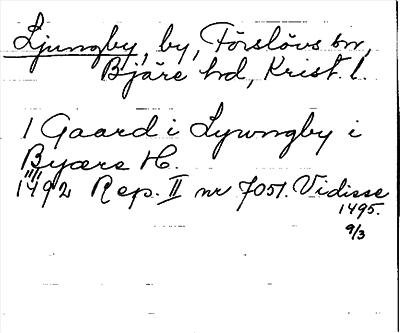 Ljungby, by, Förslövs sn,
Bjäre hd, Krist. l.
1 Gaard i Lywngby i
Byære H.
11/11
1492 Rep. II nr 7051. Vidisse
1495.
9/3